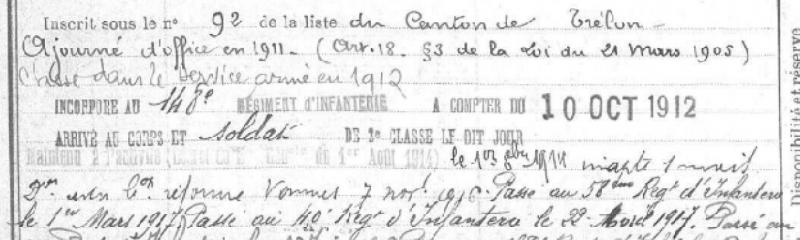 Inscrit sous le n° 92 de la liste du Canton de Trélon
Ajourné d'office en 1911 - (Art. 18. §3 de la Loi du 21 Mars 1905)
Classé dans le service armé en 1912
INCORPORE AU 148e RÉGIMENT D'INFANTERIE A COMPTER DU 10 OCT 1912
ARRIVÉ AU CORPS ET soldat DE 2e CLASSE LE DIT JOUR
Maintenu à l'activité du 1er Août 1914) le 1914 inapte
réforme Vannes 7 nov. Passé au 58ème Regt d'Infanterie
le 1er Mars 1917. Passé au 40e Regt d'Infanterie le 22 1917. Passé au
Disponibilité et réserve